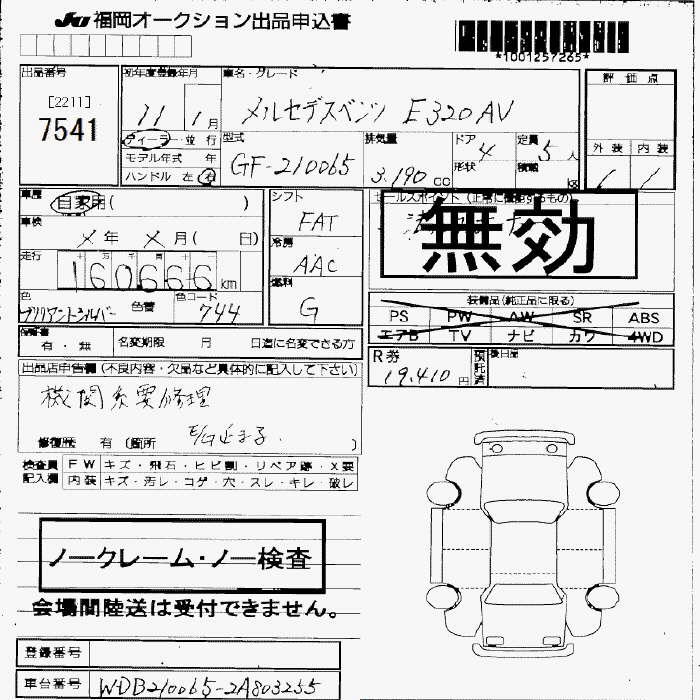 JU 福岡オークション出品申込書
*1001257265*
出品番号
[2211]
7541
初年度登録年月
11 1月
ディーラー 並行
モデル年式 年
ハンドル 左 右
車名・グレード
メルセデスベンツ E320AV
型式
GF-210065
排気量
3.190 cc
ドア
4
形状
定員
5人
積載
kg
評価点
外装 内装
車歴
自家用( )
車検
メ年 メ月( 日)
走行
160,666 km
色
ブリリアントシルバー
色替
色コード
744
シフト
FAT
冷房
AAC
燃料
G
セールスポイント(正常に機能するもの)
無効
装備品(純正品に限る)
PS PW AW SR ABS
エアB TV ナビ カワ 4WD
R券
19,410円
預託済
後日品
保証書
有・無
名変期限 月 日迄に名変できる方
出品店申告欄(不良内容・欠品など具体的に記入して下さい)
機関系要修理
E/G止まる.
修復歴 有(箇所 )
検査員記入欄
FW キズ・飛石・ヒビ割・リペア跡・X要
内装 キズ・汚レ・コゲ・穴・スレ・キレ・破レ
ノークレーム・ノー検査
会場間陸送は受付できません。
登録番号
車台番号
WDB210065-2A803255